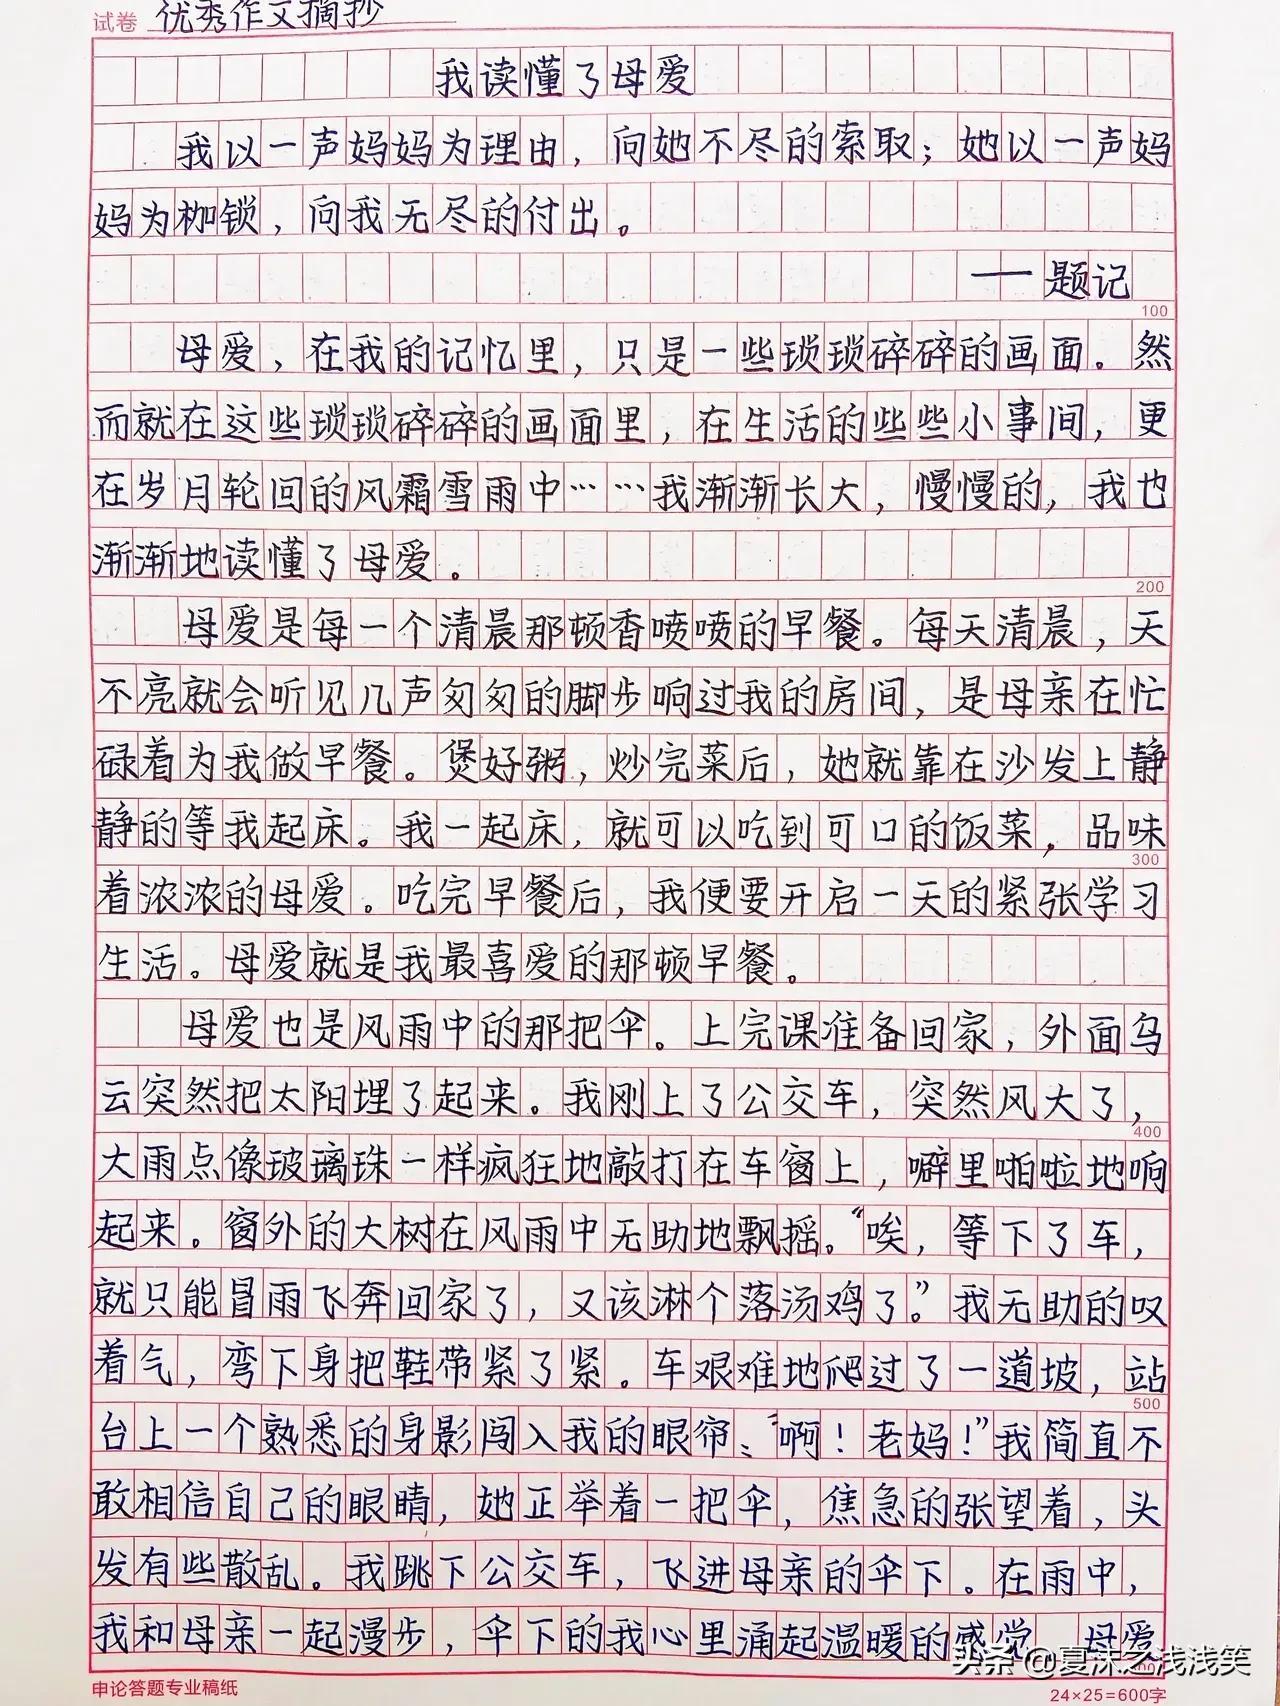 试卷 优秀作文摘抄
我读懂了母爱
我以一声妈妈为理由，向她不尽的索取；她以一声妈
妈为枷锁，向我无尽的付出。
——题记
100
母爱，在我的记忆里，只是一些琐琐碎碎的画面。然
而就在这些琐琐碎碎的画面里，在生活的些些小事间，更
在岁月轮回的风霜雪雨中……我渐渐长大，慢慢的，我也
渐渐地读懂了母爱。
200
母爱是每一个清晨那顿香喷喷的早餐。每天清晨，天
不亮就会听见几声匆匆的脚步响过我的房间，是母亲在忙
碌着为我做早餐。煲好粥，炒完菜后，她就靠在沙发上静
静的等我起床。我一起床，就可以吃到可口的饭菜，品味
300
着浓浓的母爱。吃完早餐后，我便要开启一天的紧张学习
生活。母爱就是我最喜爱的那顿早餐。
母爱也是风雨中的那把伞。上完课准备回家，外面乌
云突然把太阳埋了起来。我刚上了公交车，突然风大了，
400
大雨点像玻璃珠一样疯狂地敲打在车窗上，噼里啪啦地响
起来。窗外的大树在风雨中无助地飘摇。“唉，等下了车，
就只能冒雨飞奔回家了，又该淋个落汤鸡了。”我无助的叹
着气，弯下身把鞋带紧了紧。车艰难地爬过了一道坡，站
500
台上一个熟悉的身影闯入我的眼帘、“啊！老妈！”我简直不
敢相信自己的眼睛，她正举着一把伞，焦急的张望着，头
发有些散乱。我跳下公交车，飞进母亲的伞下。在雨中，
我和母亲一起漫步，伞下的我心里涌起温暖的感觉 母爱
头条 @夏沫之浅浅笑
申论答题专业稿纸
24×25=600字